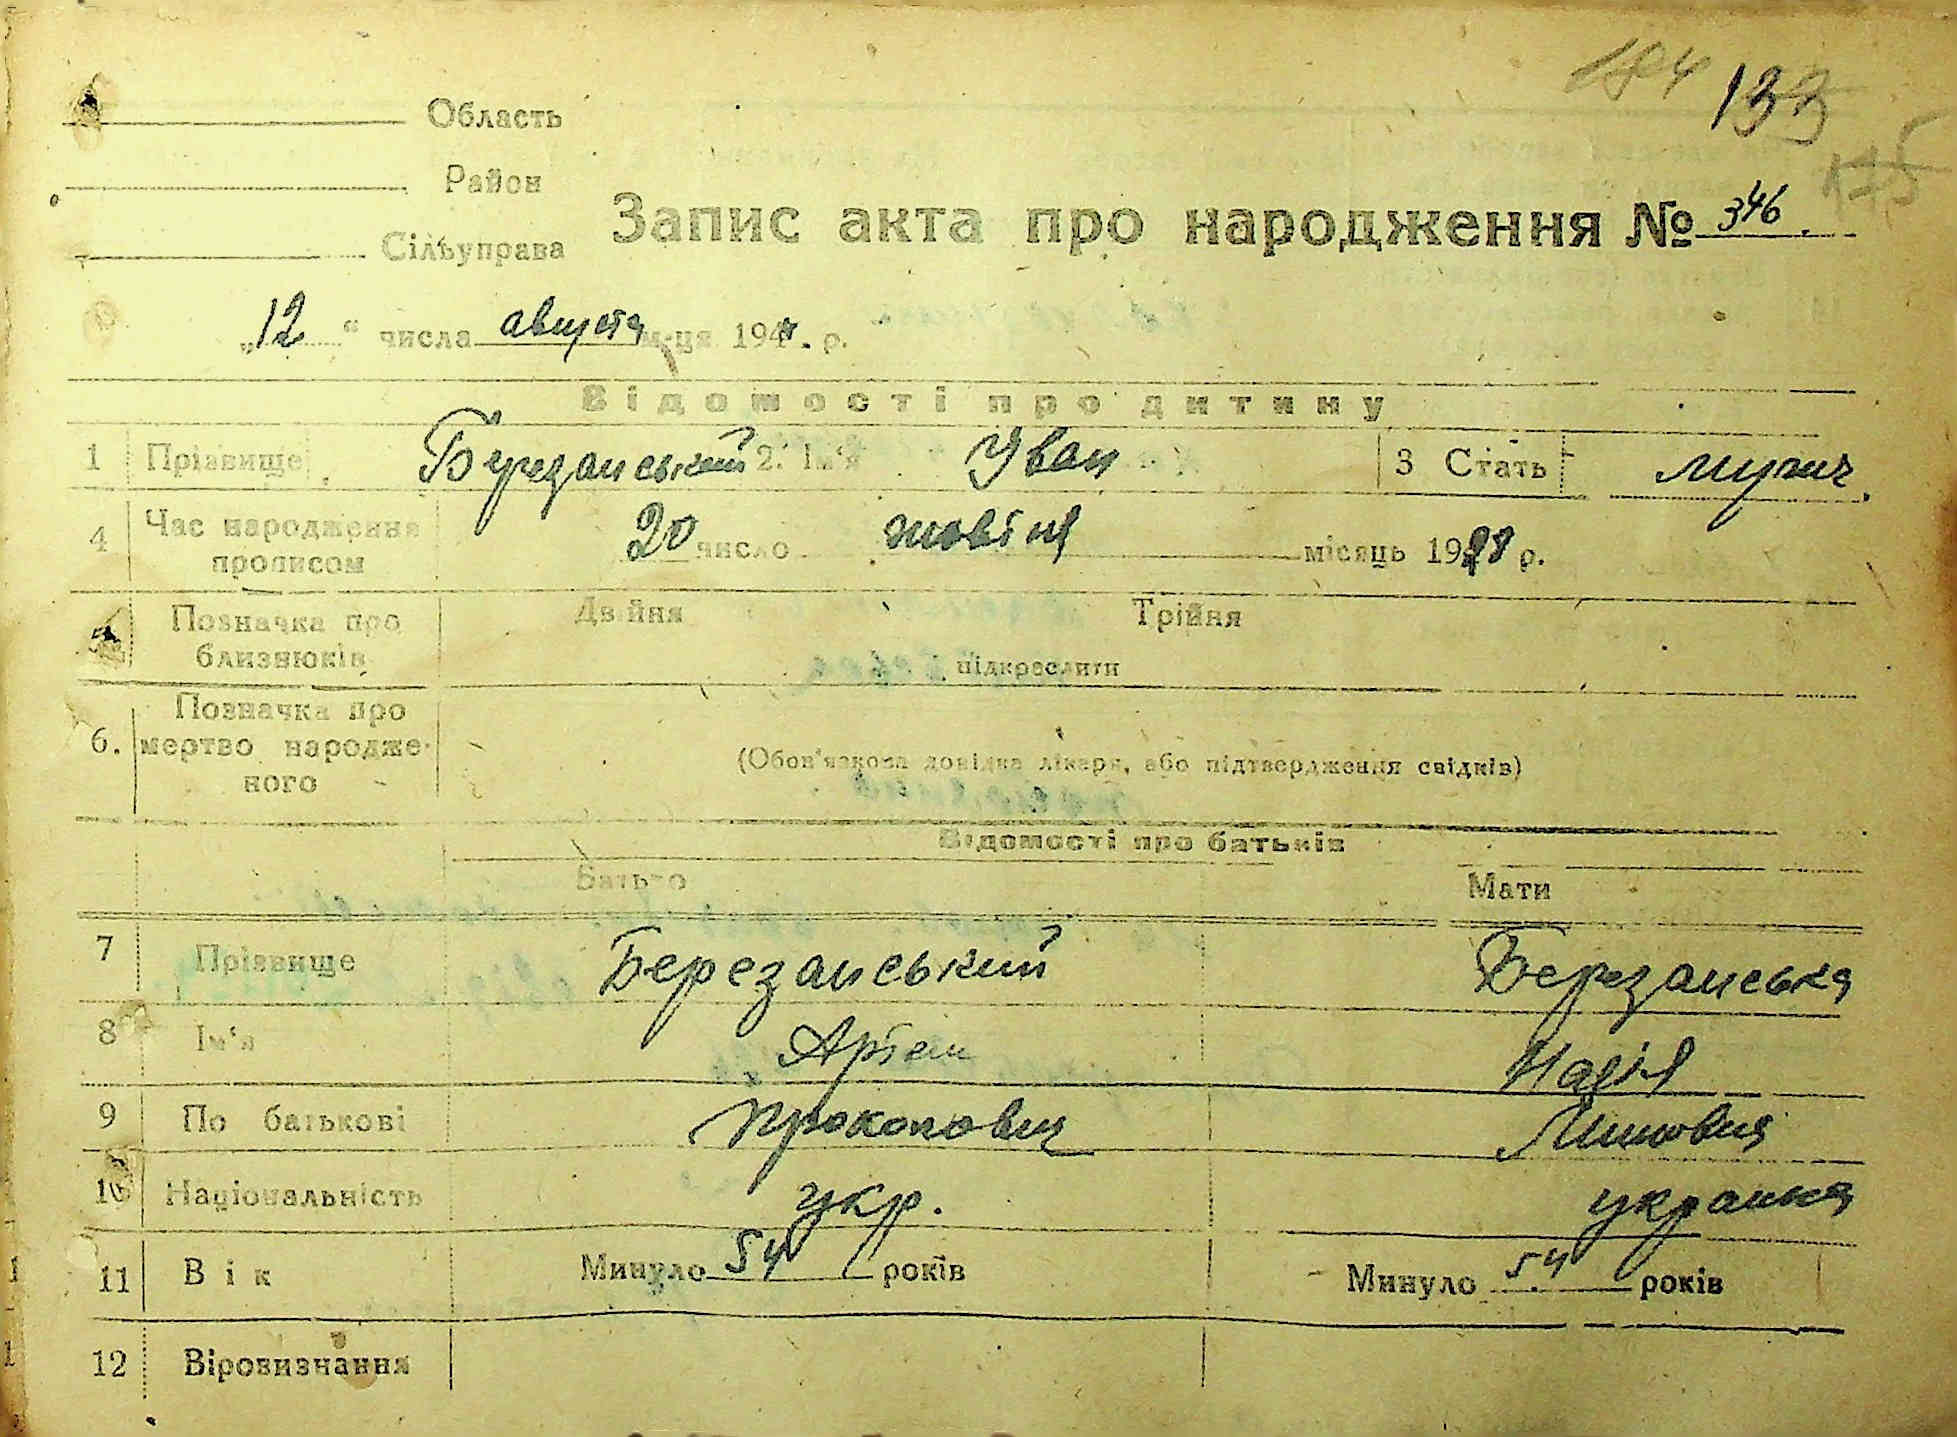 184 133
Область
Район
175
Сільуправа
Запис акта про народження № 346.
„12" числа августа м-ця 194 . р.
Відомості про дитину
1 Прізвище Березанський 2. Ім'я Иван 3 Стать мужич.
4 Час народження 20 число жовтня місяць 19 р.
прописом
Позначка про Двійня Трійня
близнюків підкреслити
Позначка про
6. мертво народже-
ного (Обов'язкова довідка лікаря, або підтвердження свідків)
Відомості про батьків
Батько Мати
7 Прізвище Березанський Березанська
8 Ім'я Артем Надія
9 По батькові Прокопович
10 Національність укр. українка
11 Вік Минуло 54 років Минуло 54 років
12 Віровизнання